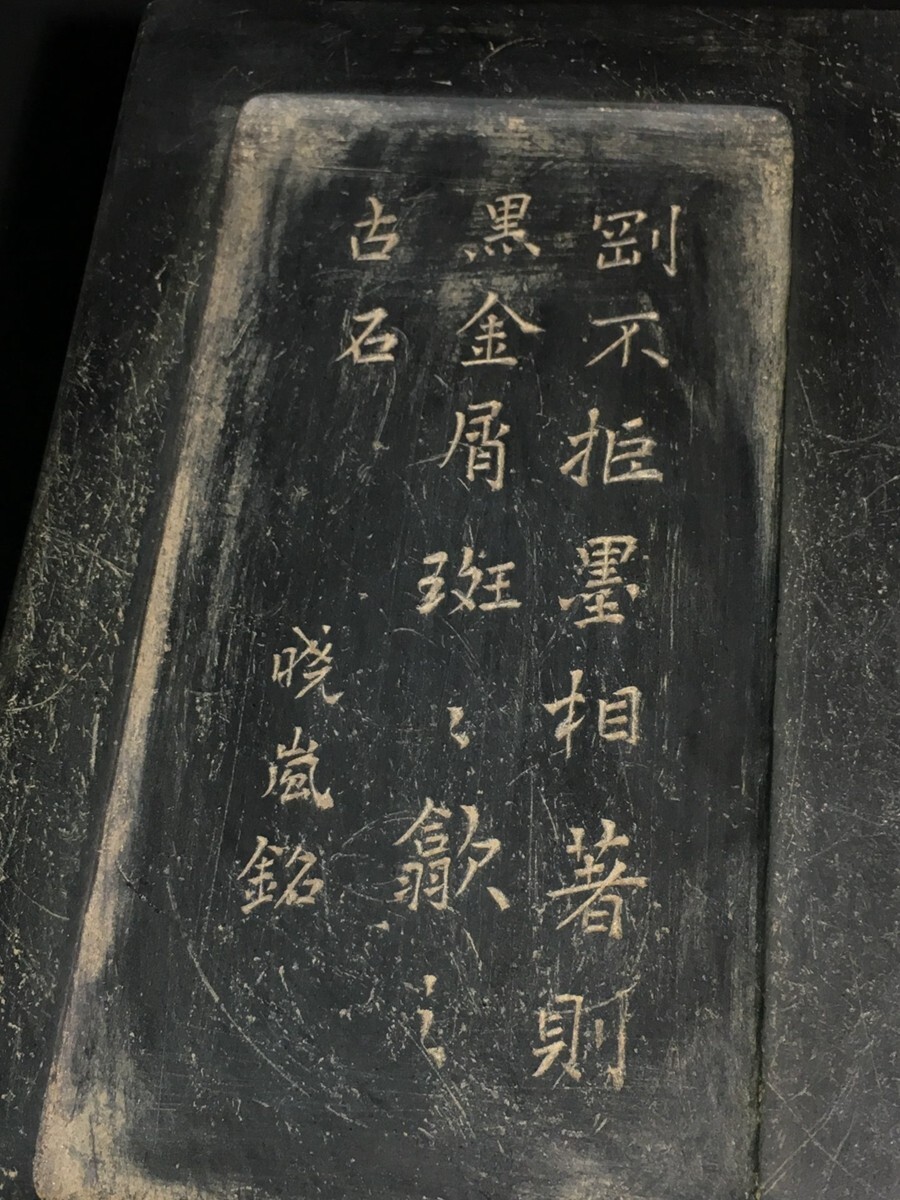 剛不拒墨相著則
黒金屑斑〻歙〻
古石
晓嵐銘